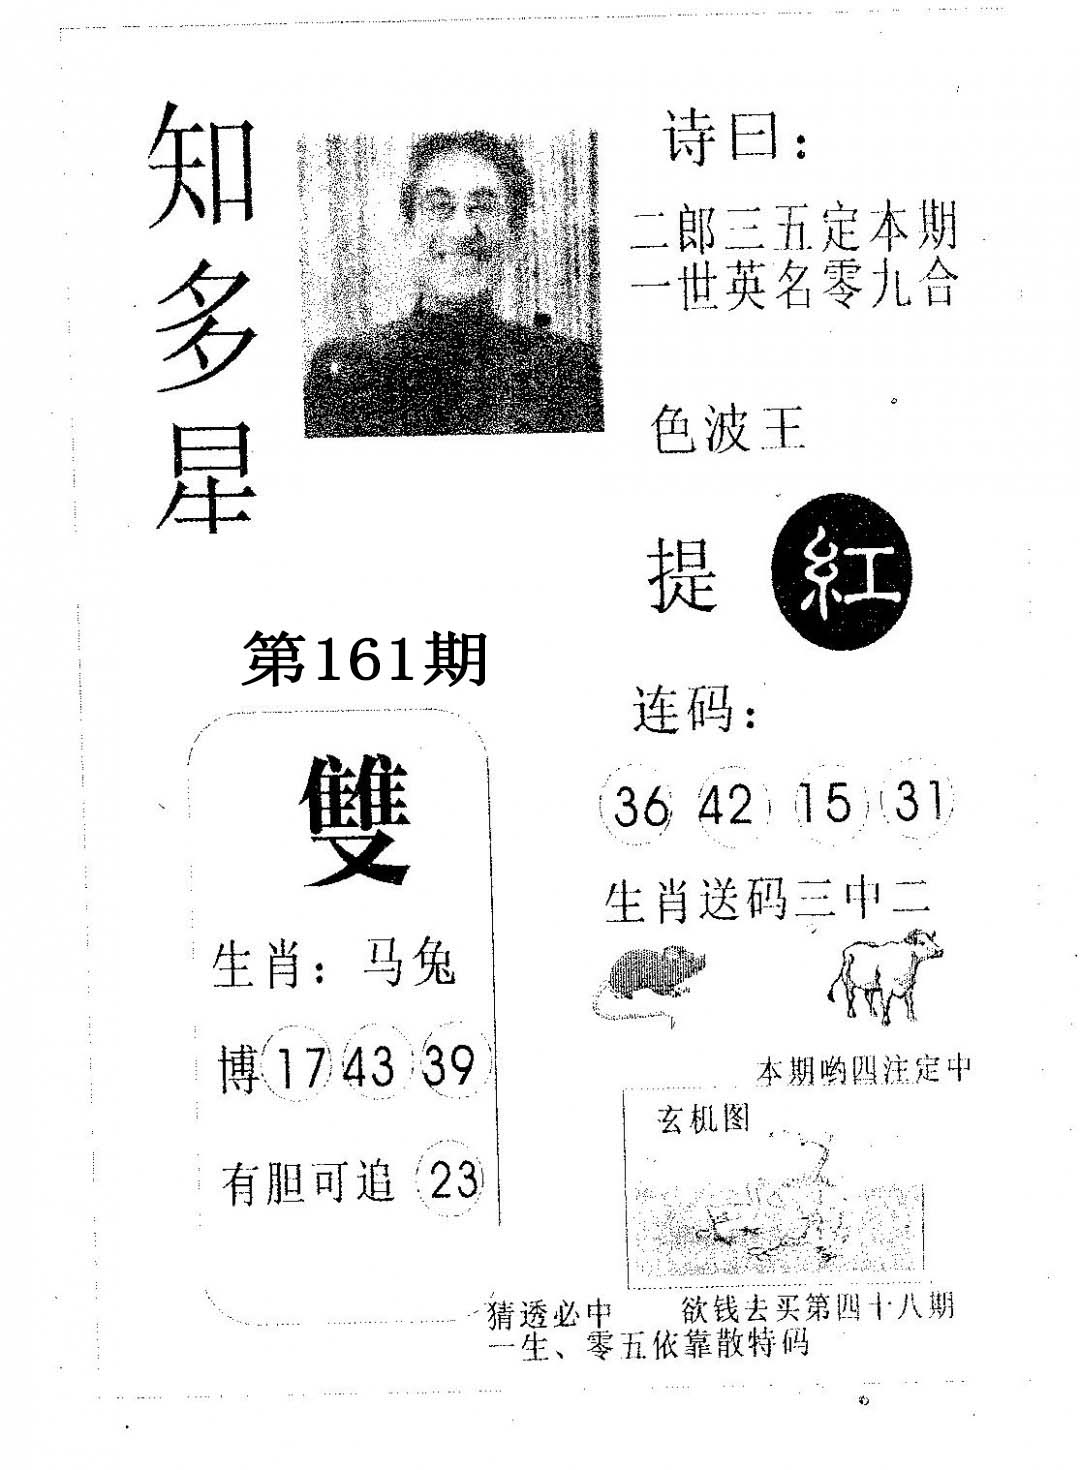 知多星
诗曰：
二郎三五定本期
一世英名零九合
色波王
提 紅
第161期
连码：
36 42 15 31
雙
生肖送码三中二
生肖：马兔
博 17 43 39
本期哟四注定中
玄机图
有胆可追 23
猜透必中 欲钱去买第四十八期
一生、零五依靠散特码